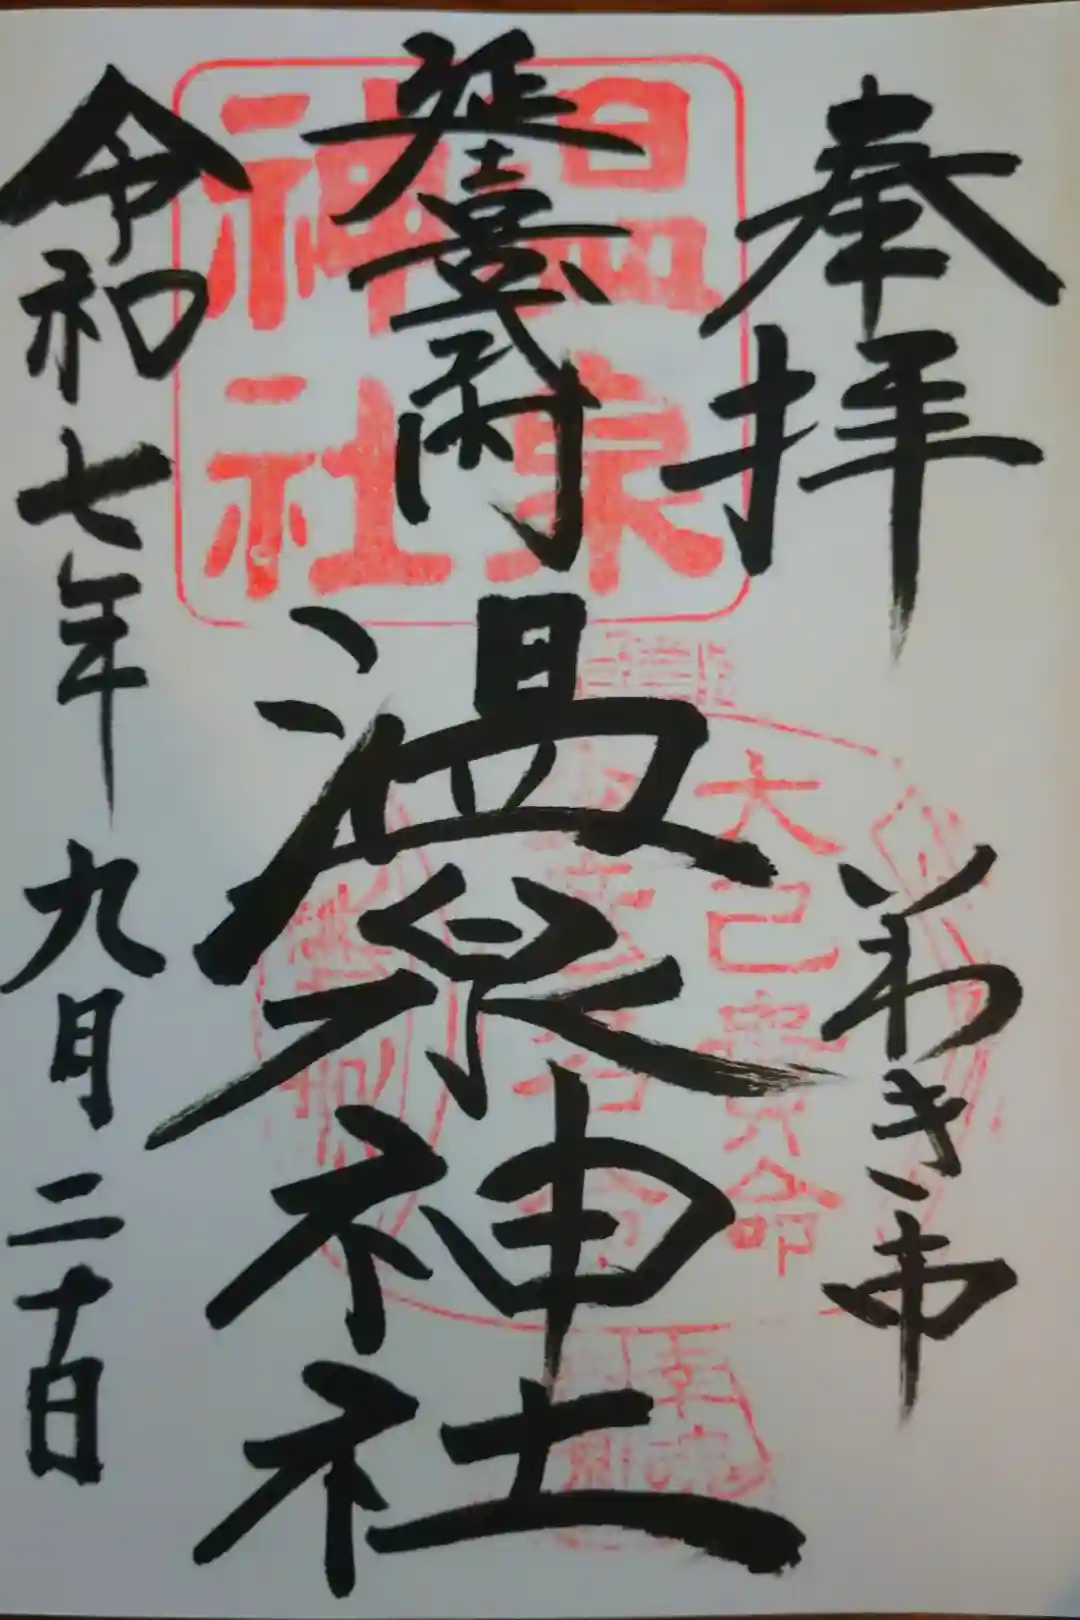 奉拝
いわき市
延喜式内
温泉神社
令和七年九月二十日
温泉
神社
大己貴命